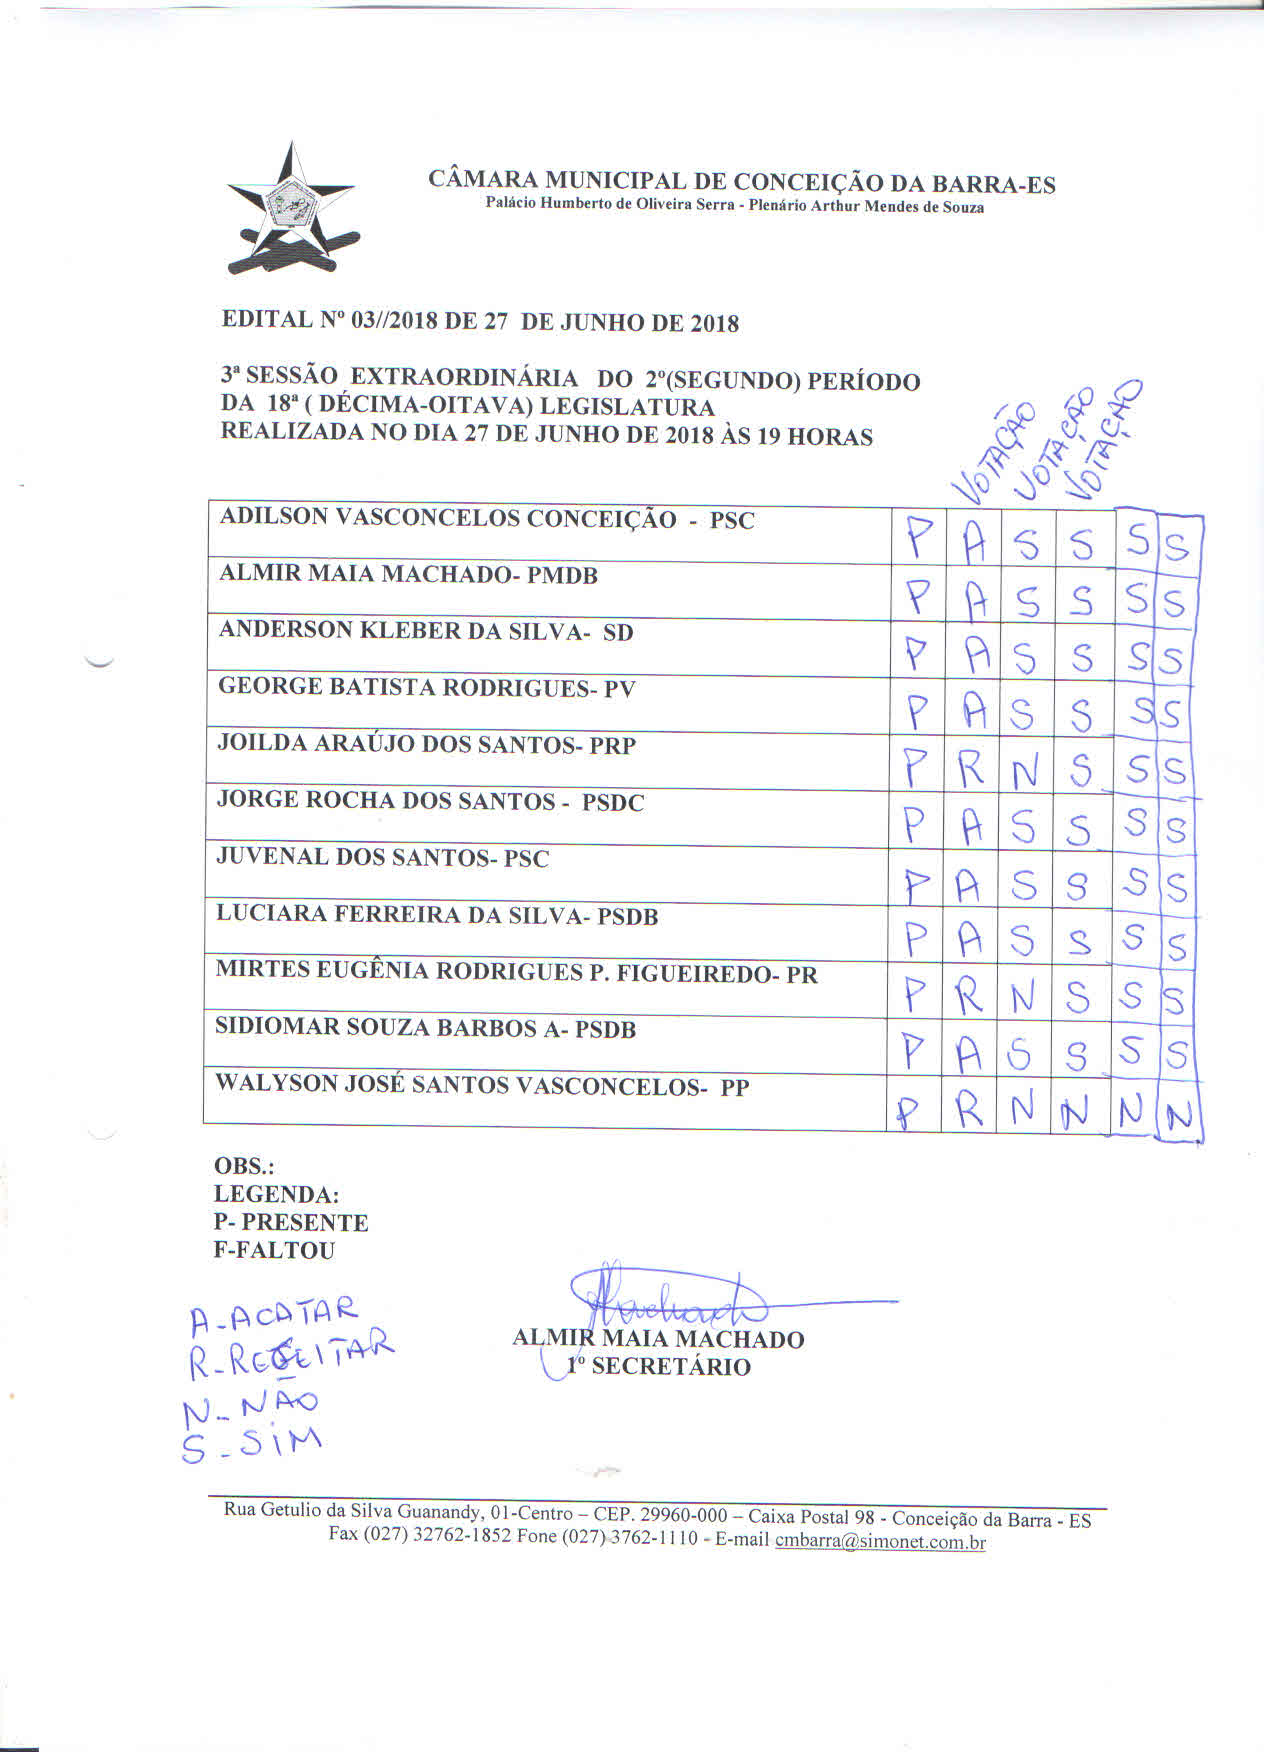 CÂMARA MUNICIPAL DE CONCEIÇÃO DA BARRA-ES
Palácio Humberto de Oliveira Serra - Plenário Arthur Mendes de Souza
EDITAL Nº 03//2018 DE 27 DE JUNHO DE 2018
3ª SESSÃO EXTRAORDINÁRIA DO 2º(SEGUNDO) PERÍODO
DA 18ª ( DÉCIMA-OITAVA) LEGISLATURA
REALIZADA NO DIA 27 DE JUNHO DE 2018 ÀS 19 HORAS
VOTAÇÃO VOTAÇÃO VOTAÇÃO
ADILSON VASCONCELOS CONCEIÇÃO - PSC P A S S S S
ALMIR MAIA MACHADO- PMDB P A S S S S
ANDERSON KLEBER DA SILVA- SD P A S S S S
GEORGE BATISTA RODRIGUES- PV P A S S S S
JOILDA ARAÚJO DOS SANTOS- PRP P R N S S S
JORGE ROCHA DOS SANTOS - PSDC P A S S S S
JUVENAL DOS SANTOS- PSC P A S S S S
LUCIARA FERREIRA DA SILVA- PSDB P A S S S S
MIRTES EUGÊNIA RODRIGUES P. FIGUEIREDO- PR P R N S S S
SIDIOMAR SOUZA BARBOS A- PSDB P A S S S S
WALYSON JOSÉ SANTOS VASCONCELOS- PP P R N N N N
OBS.:
LEGENDA:
P- PRESENTE
F-FALTOU
A-ACATAR
R-REJEITAR
N-NÃO
S-SIM
Machado
ALMIR MAIA MACHADO
1º SECRETÁRIO
Rua Getulio da Silva Guanandy, 01-Centro – CEP. 29960-000 – Caixa Postal 98 - Conceição da Barra - ES
Fax (027) 32762-1852 Fone (027) 3762-1110 - E-mail cmbarra@simonet.com.br